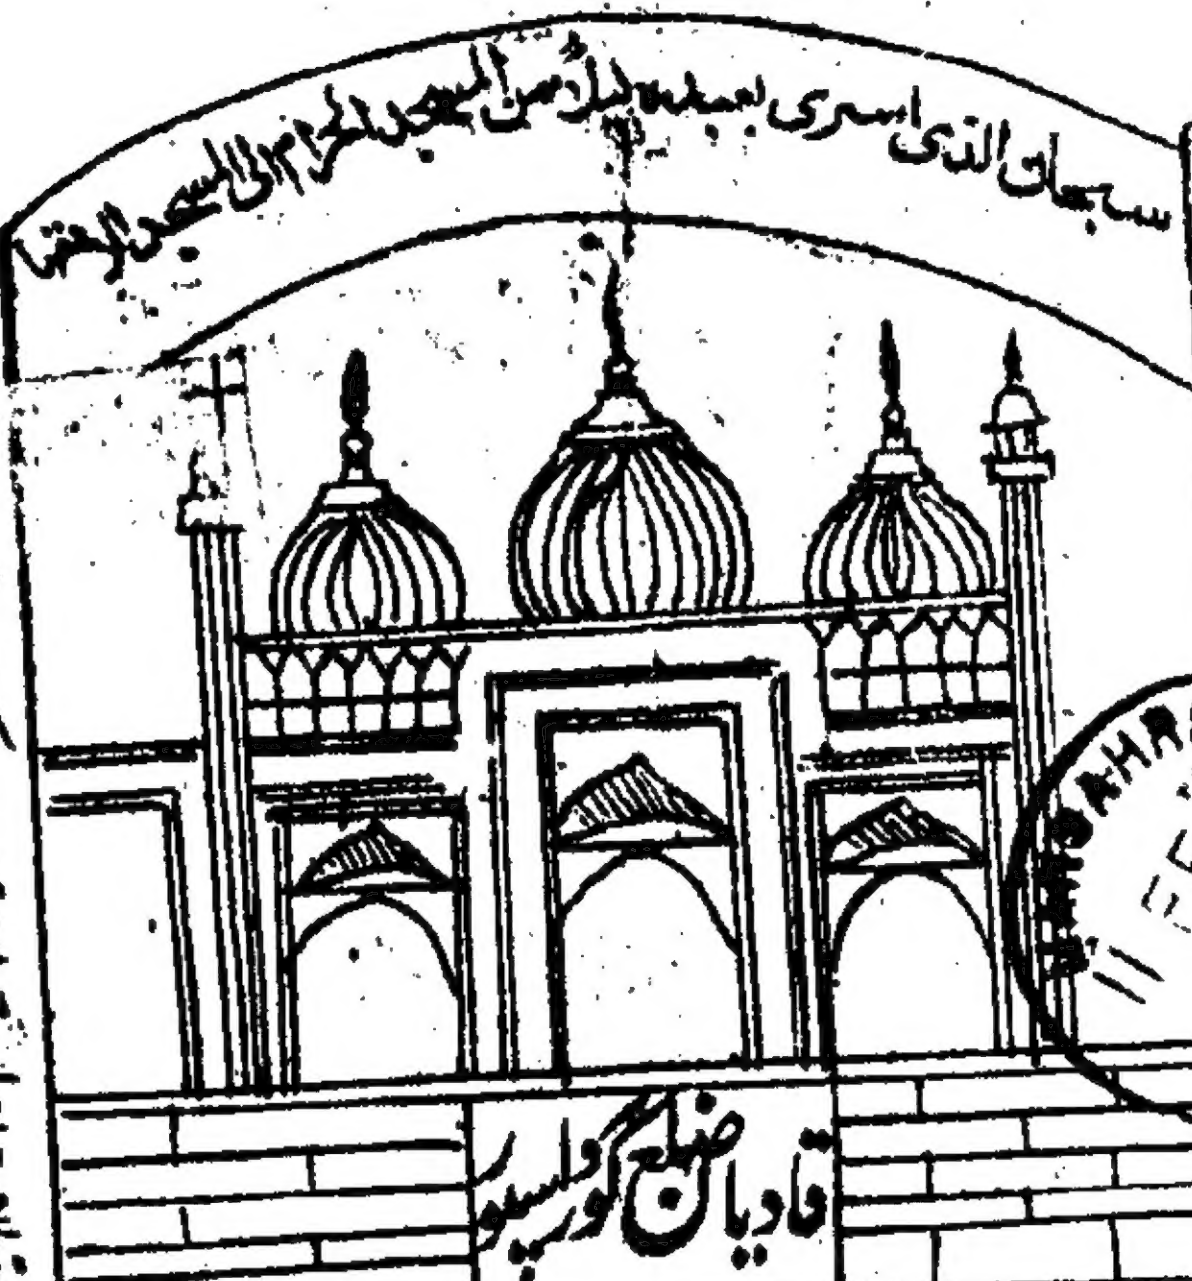 سبحان الذی اسری بعبدہ لیلاً من المسجد الحرام الی المسجد الاقصا
قادیان ضلع گورداسپور
AHR